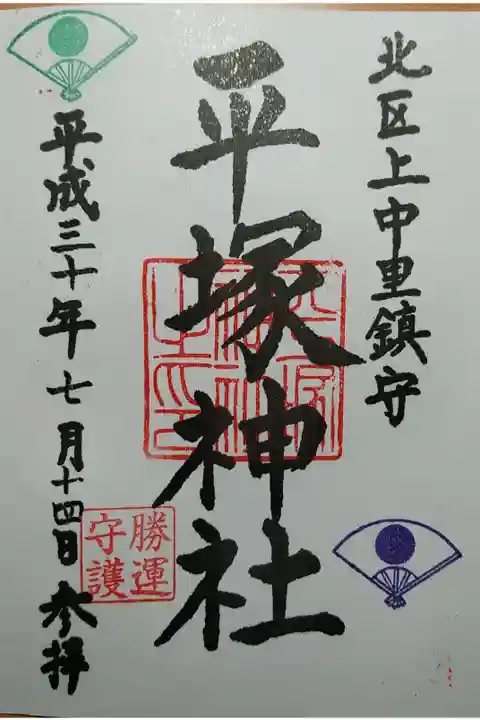 北区上中里鎮守
平塚神社
勝運
守護
平成三十年七月十四日参拝